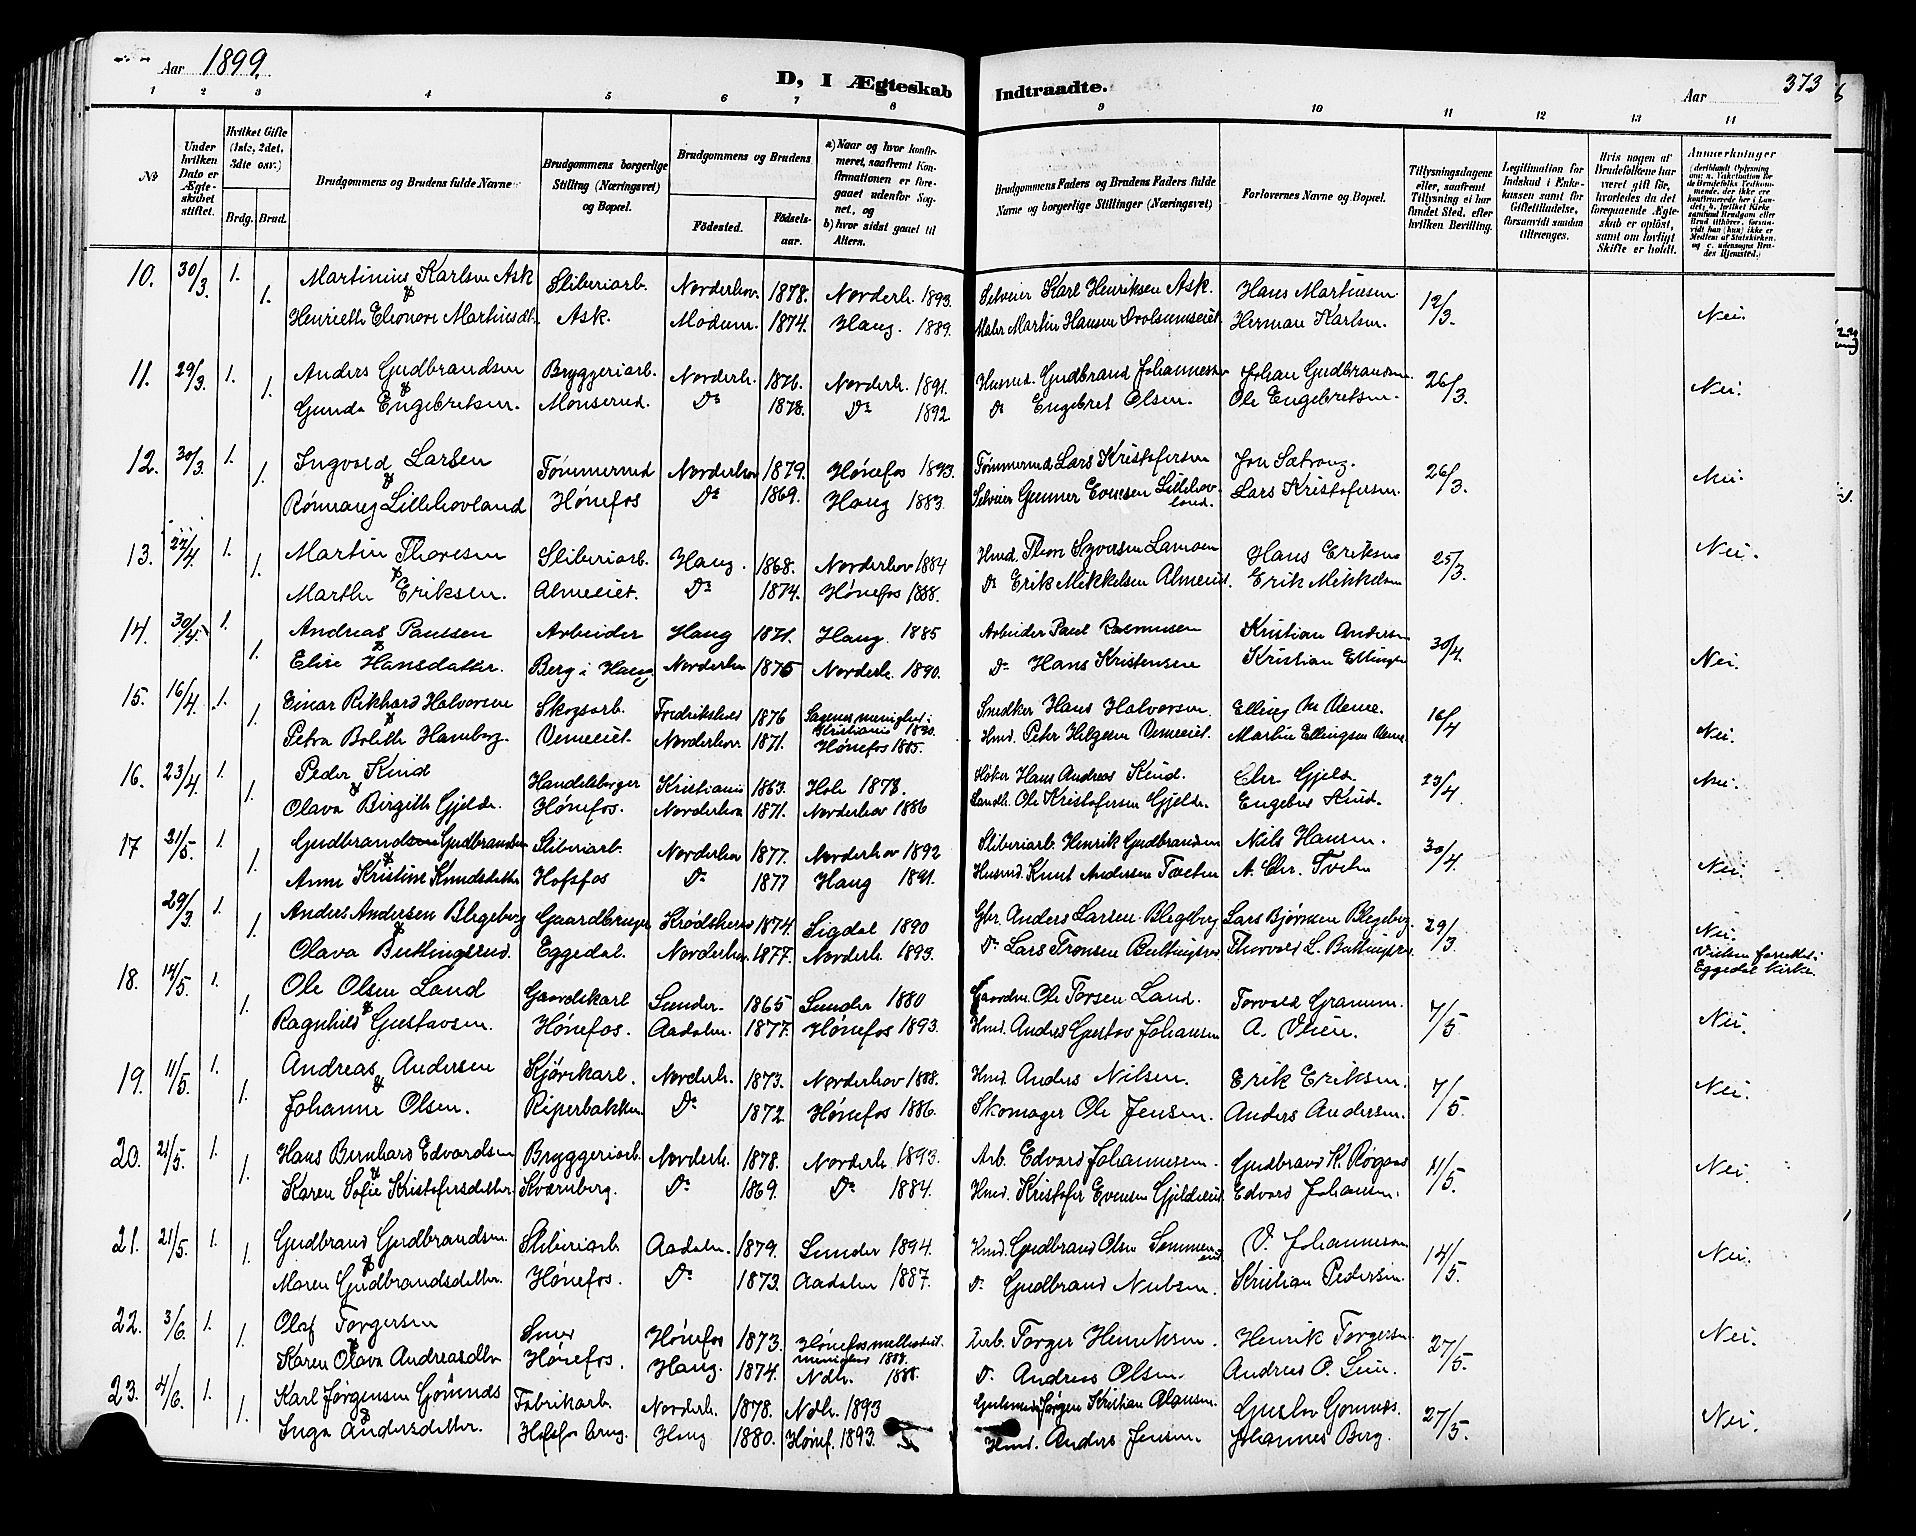 Aar 1899.
D, I Ægteskab Indtraadte.
Aar 373
1 2 3 4 5 6 7 8 9 10 11 12 13 14
No
Under hvilken Dato er Ægteskabet stiftet.
Hvilket Gifte (1ste, 2det, 3die osv.)
Brdg. Brud.
Brudgommens og Brudens fulde Navne
Brudgommens borgerlige Stilling (Næringsvei) og Bopæl.
Brudgommens og Brudens
Födested. Födselsaar.
a) Naar og hvor konfirmeret, saafremt Konfirmationen er foregaaet udenfor Sognet, og
b) hvor sidst gaaet til Altern.
Brudgommens Faders og Brudens Faders fulde Navne og borgerlige Stillinger (Næringsvei)
Forlovernes Navne og Bopæl.
Tillysningsdagene eller, saafremt Tillysning ei har fundet Sted, efter hvilken Bevilling.
Legitimation for Indskud i Enkekassen samt for Giftetilladelse, forsaavidt saadan tiltrænges.
Hvis nogen af Brudefolkene har været gift før, hvorledes da det foregaaende Ægteskab er oplöst, samt om lovligt Skifte er holdt.
Anmærkninger
10. 30/3. 1. Martinius Karlsen Ask Sliberiarb. Norderhov. 1878. Norderh. 1893. Selveier Karl Henriksen Ask. Hans Martinsen 12/3. Nei.
& 1. Henriette Eleonore Martinsdt. Ask. Modum. 1874. Haug. 1889. Martin Hansen Herman Karlsen.
11. 29/3. 1. Anders Gudbrandsen Bryggeriarb. Norderh. 1876. Norderh. 1891. Husmd. Gudbrand Johannessen Johan Gudbrandsen. 26/3. Nei.
& 1. Gunda Engebretsen. Monserud. Do 1878. Do 1892 Do Engebret Olsen. Ole Engebretsen.
12. 30/3. 1. Ingvald Larsen Tømmermd Norderhov 1879. Hønefos 1893. Tømmermd Lars Kristofersen Jon Sætrang. 26/3. Nei.
& 1. Rønnaug Lillehovland Hønefos Do 1869. Haug 1883. Selveier Gunner Evensen Lillehovland. Lars Kristofersen.
13. 22/4. 1. Martin Thoresen Sliberiarb. Haug. 1868. Norderhov 1884 Hmd. Thore Syversen Lamoen Hans Eriksen 25/3. Nei.
& 1. Marthe Eriksen. Almeeiet. Do 1874. Hønefos 1888. Do Erik Mikkelsen Almeeiet. Erik Mikkelsen
14. 30/4. 1. Andreas Paulsen Arbeider Haug 1871. Haug. 1885 Arbeider Paul Rasmussen Kristian Andersen 30/4. Nei.
& 1. Elise Hansdatter. Berg i Haug Norderhov 1875 Norderh. 1890. Do Hans Kristensen Kristian Ellingsen
15. 16/4. 1. Einar Rikhard Halvorsen Skogsarb. Fredrikshald 1876 Sagenes menighed i Kristiania 1890. Snedker Hans Halvorsen. Elling M. Veme. 16/4 Nei.
& 1. Petra Bolette Hamborg. Vemeeiet. Norderhov 1871. Hønefos 1885. Hmd. Peter Helgesen Vemeeiet. Martin Ellingsen Veme
16. 23/4. 1. Peder Knud Handelsborger Kristiania 1863. Hole 1878. Høker Hans Andreas Knud. Chr Gjelde 23/4. Nei.
& 1. Olava Birgitte Gjelde. Hønefos. Norderhov 1871. Norderhov 1886 Landh. Ole Kristofersen Gjelde. Engebret Knud.
17 21/5. 1. Gudbrandsen Gudbrandsen Sliberiarb. Norderhov 1877. Norderhov 1892 Sliberiarb. Henrik Gudbrandsen Nils Hansen. 30/4. Nei.
& 1. Anne Kristine Knudsdatter Hofsfos Do 1877 Haug 1891. Husmd. Knut Andersen Tveten A. Chr. Tveten
29/3. 1. Anders Andersen Blegeberg Gaardbruger Krødsherred 1874. Sigdal 1890 Gbr. Anders Larsen Blegeberg Lars Bjørnsen Blegeberg. 29/3. Nei.
& 1. Olava Buttingsrud. Eggedal. Norderhov. 1877. Norderh. 1893. Do Lars Tronsen Buttingsrud Thorvald L. Buttingsrud Vielsen forrettet i Eggedal Kirke
18. 14/5. 1. Ole Olsen Land Gaardskarl Lunder. 1865 Lunder 1880 Gaardm. Ole Torsen Land. Torvald Granum. 7/5 Nei.
& 1. Ragnhild Gustavsen. Hønefos. Aadalen. 1877. Hønefos 1893. Hmd. Anders Gustav Johansen A. Veien
19. 11/5. 1. Andreas Andersen Kjørekarl. Norderh. 1873. Norderhov 1888. Hmd. Anders Nilsen. Erik Eriksen. 7/5. Nei.
& 1. Johanne Olsen. Riperbakken Do 1872. Hønefos 1886. Skomager Ole Jensen. Anders Andersen.
20. 21/5. 1. Hans Bernhard Edvardsen Bryggeriarb. Norderh. 1878. Norderh. 1893. Arb. Edvard Johannesen. Gudbrand K. Røgaas 11/5. Nei.
& 1. Karen Sofie Kristofersdatter. Kværnberg. Do 1869. Do 1884. Hmd. Kristofer Evensen Gjeldeeiet Edvard Johansen.
21. 21/5. 1. Gudbrand Gudbrandsen. Sliberiarb. Aadalen. 1879. Lunder 1894. Hmd. Gudbrand Olsen V. Johannesen 14/5. Nei.
& 1. Maren Gudbrandsdatter. Hønefos. Do 1873. Aadalen 1887. Do. Gudbrand Nielsen. Kristian Pedersen.
22. 3/6. 1. Olaf Torgersen Smed Hønefos 1873. Hønefos methodist menighed 1888. Arb. Torger Henriksen. Henrik Torgersen 27/5. Nei.
& 1. Karen Olava Andreasdtr. Hønefos. Haug. 1874. Ndh. 1888. D. Andreas Olsen. Andreas P. Lien.
23. 4/6. 1. Karl Jørgensen Gomnæs Fabrikarb. Norderh. 1878. Ndh. 1893 Jørgen Kristian Olausen. Gustav Gomnæs. 27/5. Nei.
& 1. Inga Andersdatter. Hofsfos brug. Haug 1880. Hønef. 1893. Hmd. Anders Jensen. Johannes Berg.